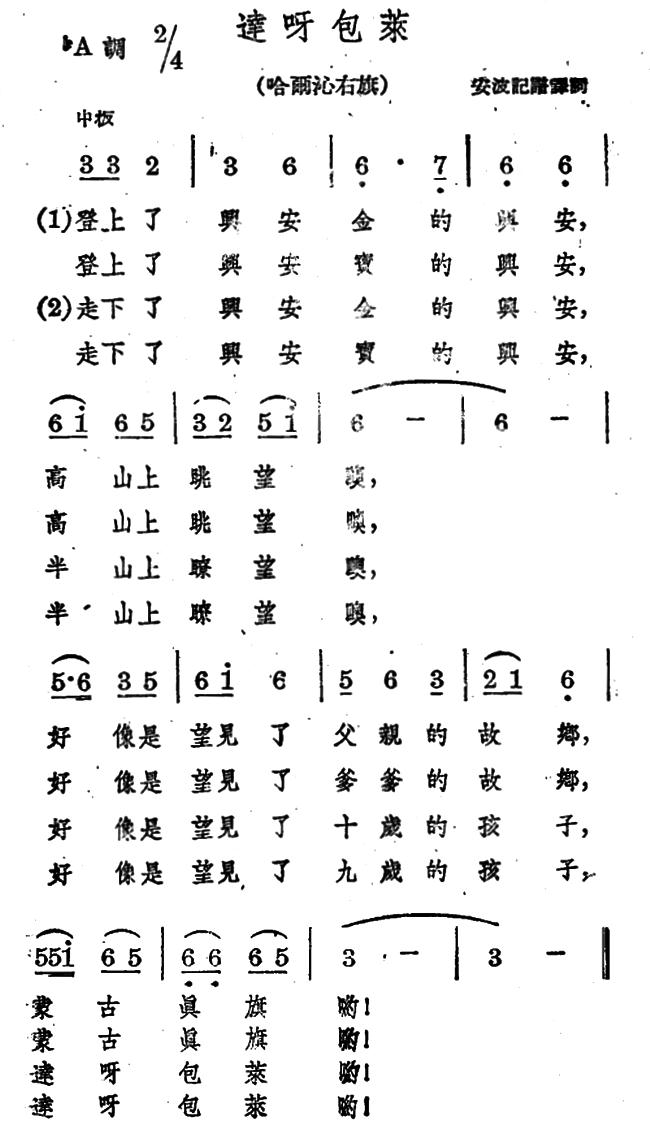 達呀包萊
♭A調 2/4
(哈爾沁右旗) 安波記譜譯詞
中板
3 3 2 | 3 6 | 6 · 7 | 6 6 |
(1)登上了 興安金的興安,
登上了 興安寶的興安,
(2)走下了 興安金的興安,
走下了 興安寶的興安,
6 i 6 5 | 3 2 5 i | 6 − | 6 − |
高 山上眺望 噢,
高 山上眺望 噢,
半 山上瞭望 噢,
半 山上瞭望 噢,
5·6 3 5 | 6 i 6 | 5 6 3 | 2 1 6 |
好 像是望見了父親的故鄉,
好 像是望見了爹爹的故鄉,
好 像是望見了十歲的孩子,
好 像是望見了九歲的孩子,
55i 6 5 | 6 6 6 5 | 3 − | 3 − ‖
蒙古眞旗 喲!
蒙古眞旗 喲!
達呀包萊 喲!
達呀包萊 喲!